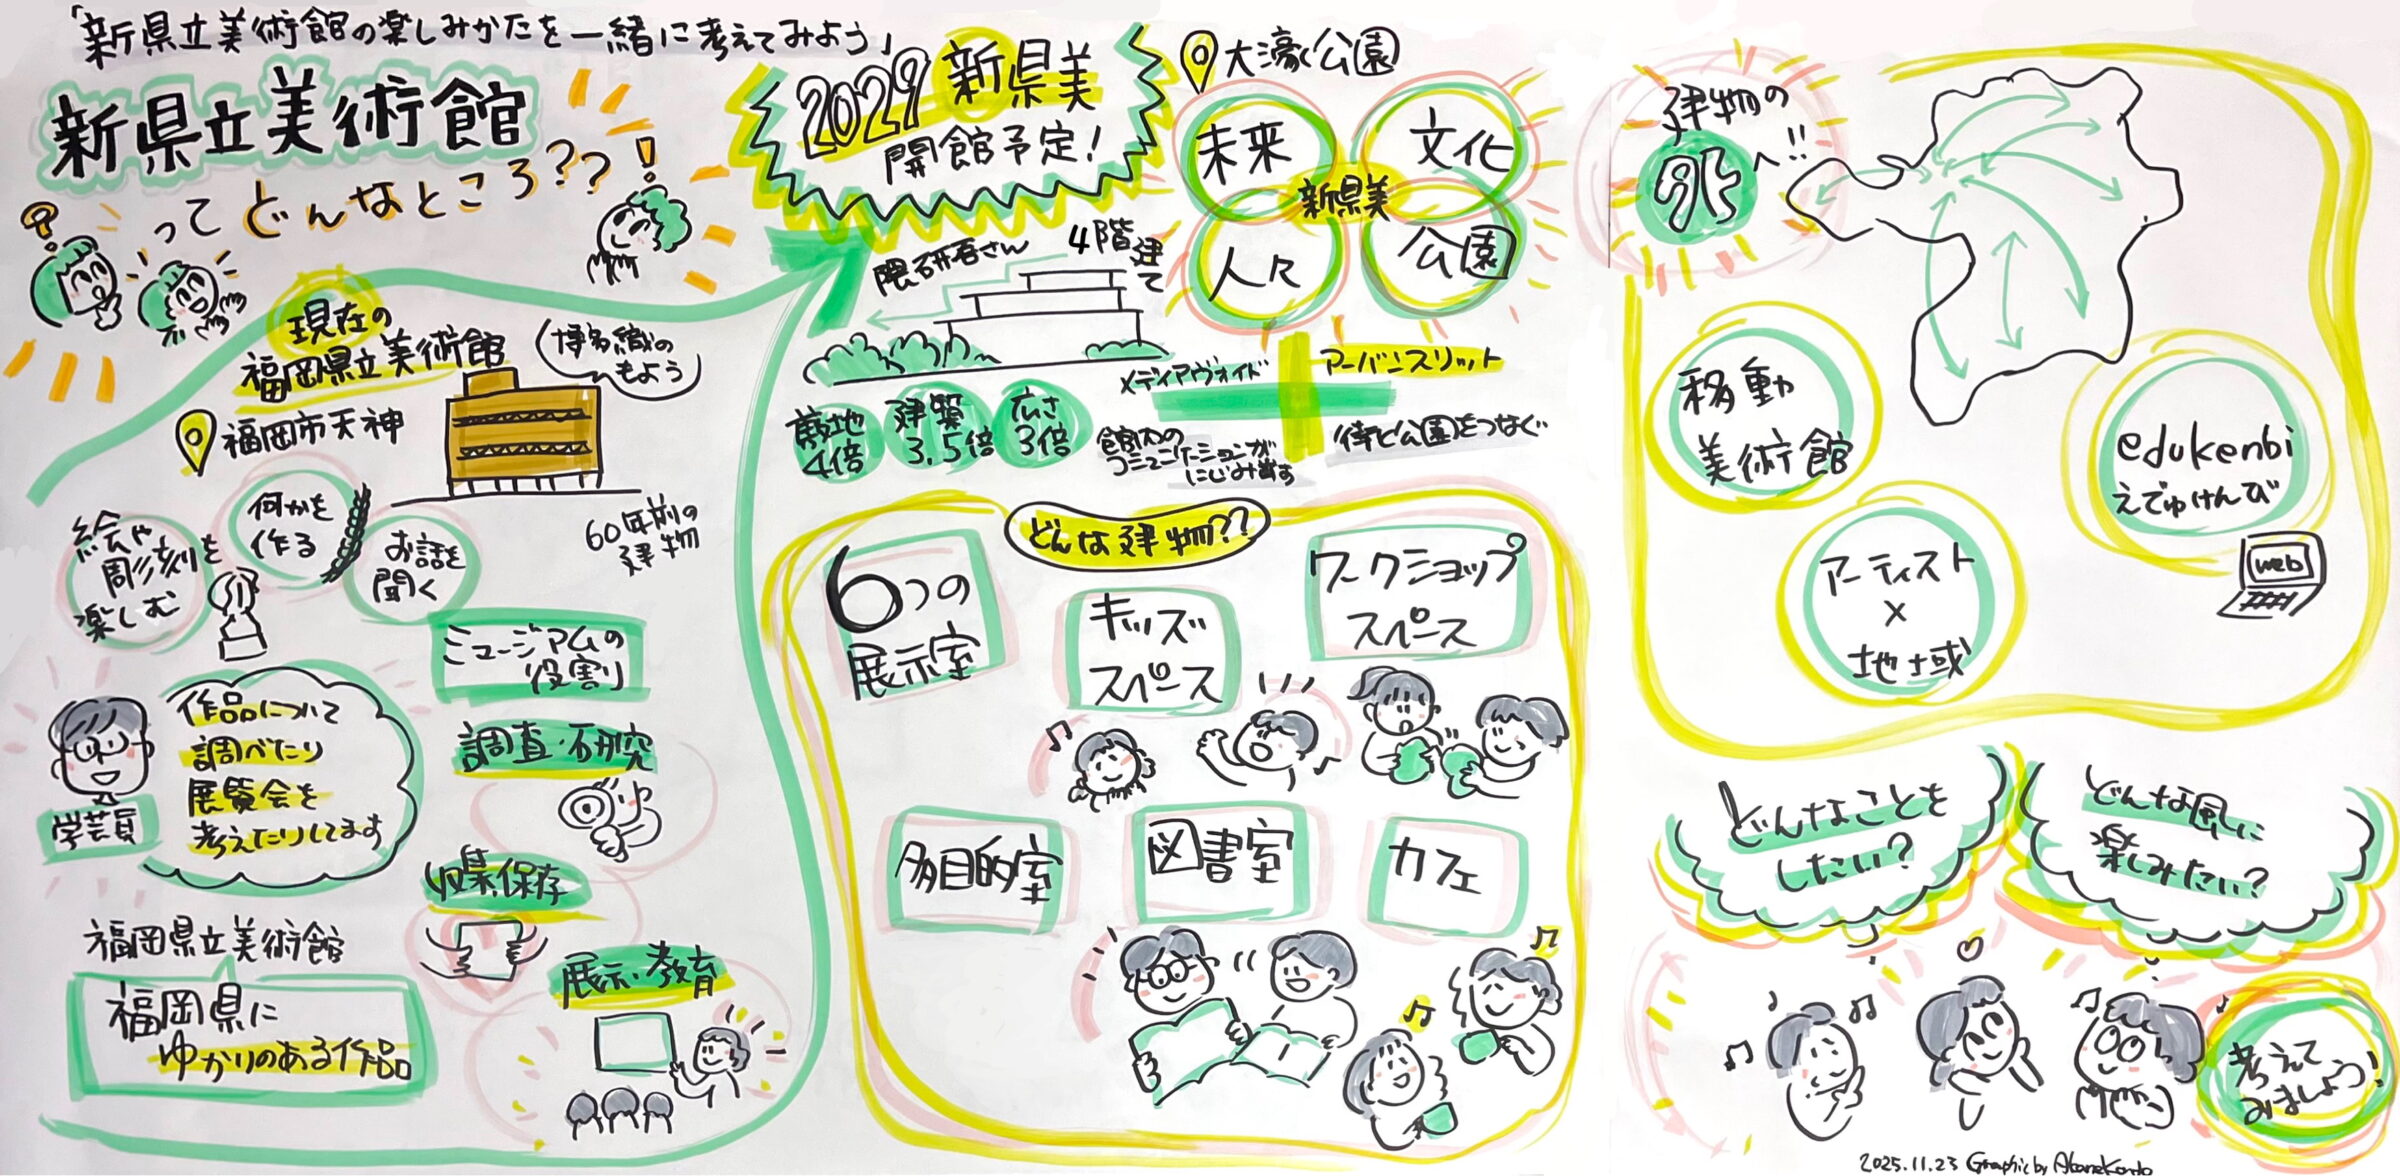 「新県立美術館の楽しみかたを一緒に考えてみよう」
新県立美術館
って どんなところ??!
?
現在の
福岡県立美術館
福岡市天神
博多織の
もよう
60年前の
建物
絵や
彫刻を
楽しむ
何かを
作る
お話を
聞く
ミュージアムの
役割り
学芸員
作品について
調べたり
展覧会を
考えたりしてます
調査・研究
収集・保存
展示・教育
福岡県立美術館
福岡県に
ゆかりのある作品
2029 新県美
開館予定!
隈研吾さん
4階建て
大濠公園
未来
文化
新県美
人々
公園
敷地
4倍
建築
3.5倍
広さ
3倍
メディアヴォイド
アーバンスリット
館内の
コミュニケーションが
にじみ出す
街と公園をつなぐ
どんな建物??
6つの
展示室
キッズ
スペース
ワークショップ
スペース
多目的室
図書室
カフェ
建物の
外へ!!
移動
美術館
edukenbi
えでゅけんび
web
アーティスト
×
地域
どんなことを
したい?
どんな風に
楽しみたい?
考えて
みましょう!
2025.11.23 Graphic by Akane Kondo